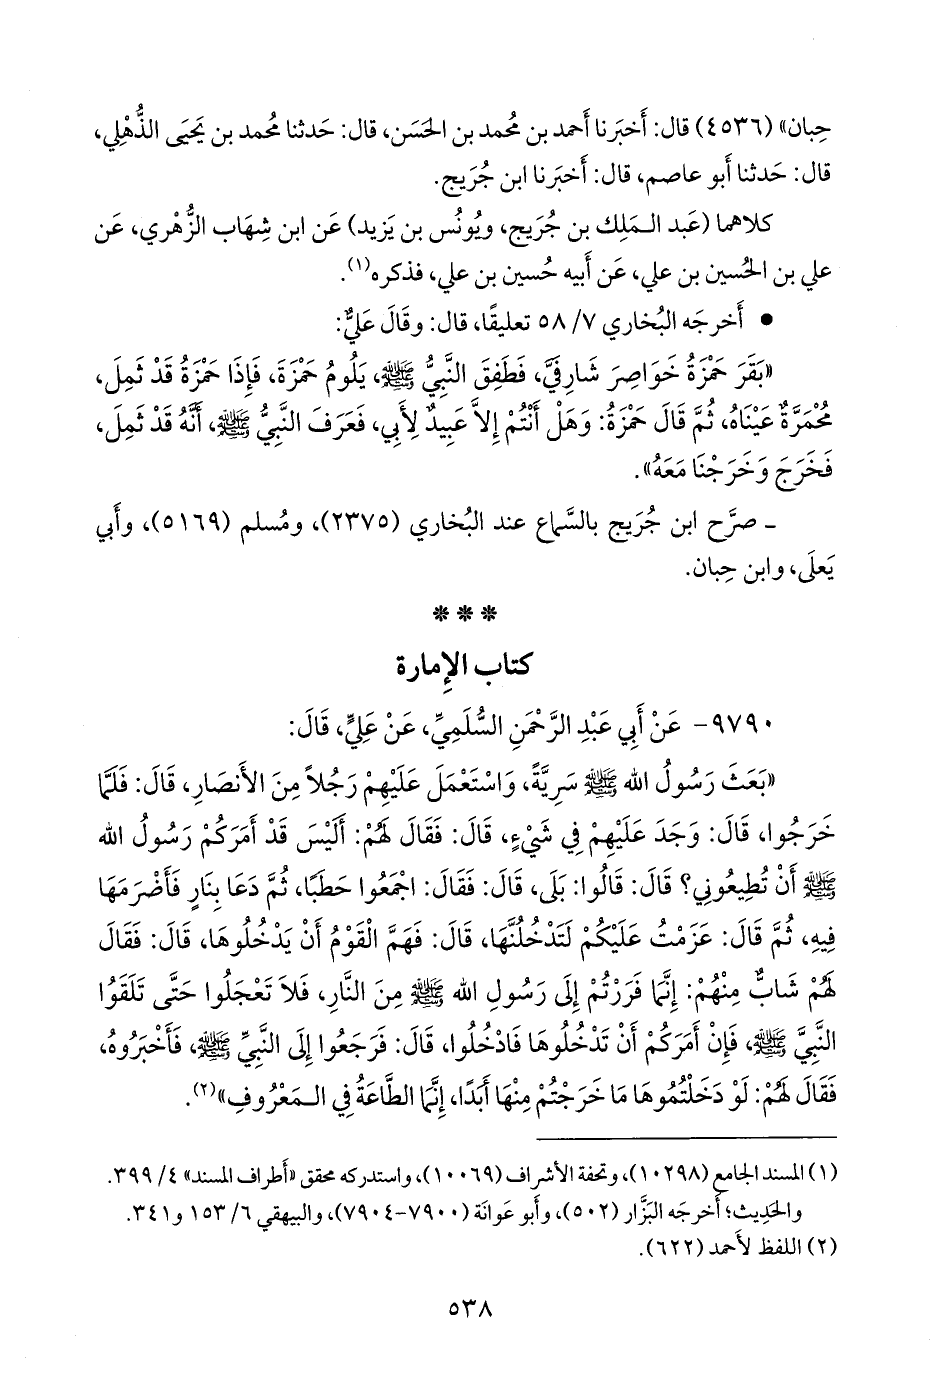 حِبان» (٤٥٣٦) قال: أَخبَرنا أَحمد بن مُحمد بن الحَسَن، قال: حَدثنا مُحمد بن يَحيَى الذُّهْلِي،
قال: حَدثنا أَبو عاصم، قال: أَخبَرنا ابن جُرَيج.
كلاهما (عَبد الـمَلِك بن جُرَيج، ويُونُس بن يَزيد) عَن ابن شِهَاب الزُّهْري، عَن
علي بن الحُسين بن علي، عَن أَبيه حُسين بن علي، فذكره(١).
• أَخرجَه البُخاري ٧/ ٥٨ تعليقًا، قال: وقَالَ عَليٌّ:
«بَقَرَ حَمْزَةُ خَوَاصِرَ شَارِفَيَّ، فَطَفِقَ النَّبِيُّ ﷺ، يَلُومُ حَمْزَةَ، فَإِذَا حَمْزَةُ قَدْ ثَمِلَ،
مُحْمَرَّةٌ عَيْنَاهُ، ثُمَّ قَالَ حَمْزَةُ: وَهَلْ أَنْتُمْ إِلاَّ عَبِيدٌ لِأَبِي، فَعَرَفَ النَّبِيُّ ﷺ، أَنَّهُ قَدْ ثَمِلَ،
فَخَرَجَ وَخَرَجْنَا مَعَهُ».
ـ صرَّح ابن جُرَيج بالسَّماع عند البُخاري (٢٣٧٥)، ومُسلم (٥١٦٩)، وأَبي
يَعلَى، وابن حِبان.
***
كتاب الإِمارة
٩٧٩٠- عَنْ أَبِي عَبْدِ الرَّحْمَنِ السُّلَمِيِّ، عَنْ عَلِيٍّ، قَالَ:
«بَعَثَ رَسُولُ الله ﷺ سَرِيَّةً، وَاسْتَعْمَلَ عَلَيْهِمْ رَجُلاً مِنَ الأَنصَارِ، قَالَ: فَلَمَّا
خَرَجُوا، قَالَ: وَجَدَ عَلَيْهِمْ فِي شَيْءٍ، قَالَ: فَقَالَ لَهُمْ: أَلَيْسَ قَدْ أَمَرَكُمْ رَسُولُ الله
ﷺ أَنْ تُطِيعُونِي؟ قَالَ: قَالُوا: بَلَى، قَالَ: فَقَالَ: اجْمَعُوا حَطَبًا، ثُمَّ دَعَا بِنَارٍ فَأَضْرَمَهَا
فِيهِ، ثُمَّ قَالَ: عَزَمْتُ عَلَيْكُمْ لَتَدْخُلُنَّهَا، قَالَ: فَهَمَّ الْقَوْمُ أَنْ يَدْخُلُوهَا، قَالَ: فَقَالَ
لَهُمْ شَابٌّ مِنْهُمْ: إِنَّمَا فَرَرْتُمْ إِلَى رَسُولِ الله ﷺ مِنَ النَّارِ، فَلاَ تَعْجَلُوا حَتَّى تَلْقَوُا
النَّبِيَّ ﷺ، فَإِنْ أَمَرَكُمْ أَنْ تَدْخُلُوهَا فَادْخُلُوا، قَالَ: فَرَجَعُوا إِلَى النَّبِيِّ ﷺ، فَأَخْبَرُوهُ،
فَقَالَ لَهُمْ: لَوْ دَخَلْتُمُوهَا مَا خَرَجْتُمْ مِنْهَا أَبَدًا، إِنَّمَا الطَّاعَةُ فِي الـمَعْرُوفِ»(٢).
(١) المسند الجامع (١٠٢٩٨)، وتحفة الأشراف (١٠٠٦٩)، واستدركه محقق «أَطراف المسند» ٤/ ٣٩٩.
والحَدِيث؛ أَخرجَه البَزَّار (٥٠٢)، وأَبو عَوانَة (٧٩٠٠-٧٩٠٤)، والبيهقي ٦/ ١٥٣ و٣٤١.
(٢) اللفظ لأَحمد (٦٢٢).
٥٣٨